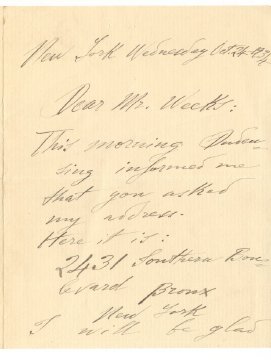 New York Wednesday Oct. 24
Dear Mr. Weeks:
This morning Duden-
sing informed me
that you asked
my address.
Here it is:
2431 Southern Bou-
levard Bronx
New York
I will be glad